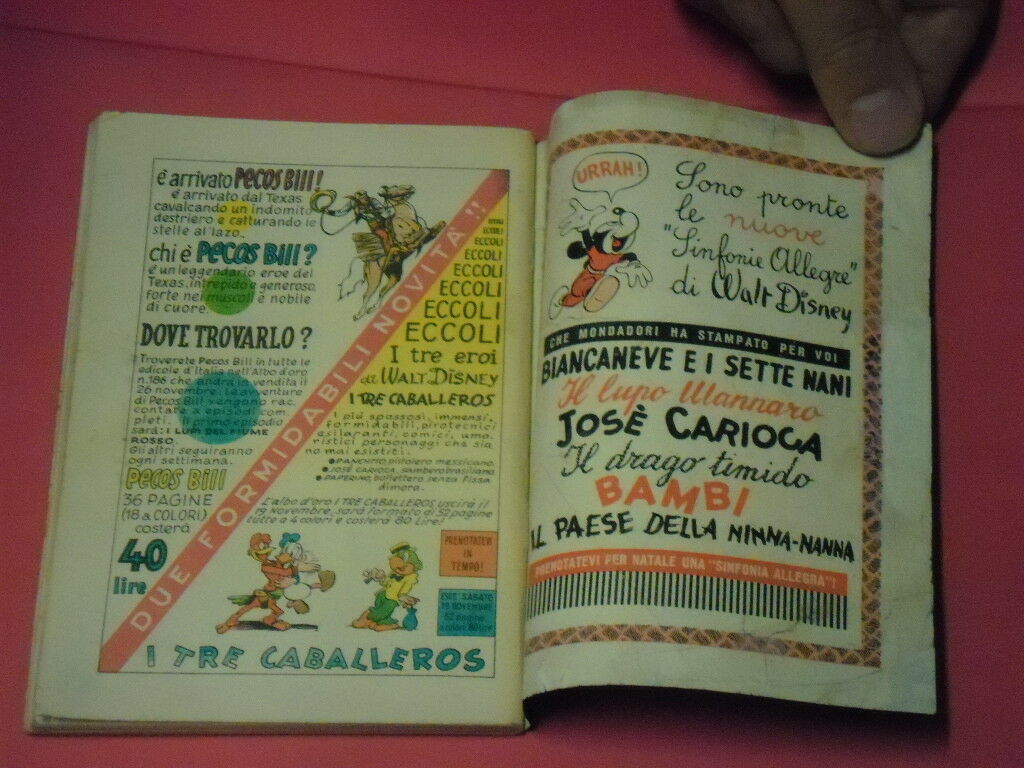 è arrivato PECOS BILL!
è arrivato dal Texas
cavalcando un indomito
destriero e catturando le
stelle al lazo.
chi è PECOS BILL?
è un leggendario eroe del
Texas, intrepido e generoso
forte nei muscoli e nobile
di cuore.
DOVE TROVARLO?
Troverete Pecos Bill in tutte le
edicole d'Italia nell'Albo d'oro
n. 186 che andrà in vendita il
26 novembre. Le avventure
di Pecos Bill vengono rac.
contate a episodi com.
pleti. Il primo episodio
sarà: I LUPI DEL FIUME
ROSSO.
Gli altri seguiranno
ogni settimana.
PECOS BILL
36 PAGINE
(18 a COLORI)
costerà
40
lire
DUE FORMIDABILI NOVITÀ!!
ECCOLI
ECCOLI
ECCOLI
ECCOLI
ECCOLI
ECCOLI
ECCOLI
I tre eroi
di WALT DISNEY
I TRE CABALLEROS
I più spassosi, immensi,
formidabili, pirotecnici
esilaranti, comici, umo.
ristici personaggi che sia
no mai esistiti.
PANCHITO, pistolero messicano.
JOSÉ CARIOCA, sambero brasiliano
PAPERINO, bollettero senza fissa
dimora.
L'albo d'oro I TRE CABALLEROS uscirà il
19 Novembre, sarà formato di 52 pagine
tutte a 4 colori e costerà 80 Lire!
PRENOTATEVI
IN
TEMPO!
ESCE SABATO
19 NOVEMBRE
52 pagine
a colori. 80 Lire
I TRE CABALLEROS
URRAH!
Sono pronte
le nuove
"Sinfonie Allegre"
di Walt Disney
CHE MONDADORI HA STAMPATO PER VOI
BIANCANEVE E I SETTE NANI
Il lupo Mannaro
JOSÈ CARIOCA
Il drago timido
BAMBI
IL PAESE DELLA NINNA-NANNA
PRENOTATEVI PER NATALE UNA "SINFONIA ALLEGRA"!